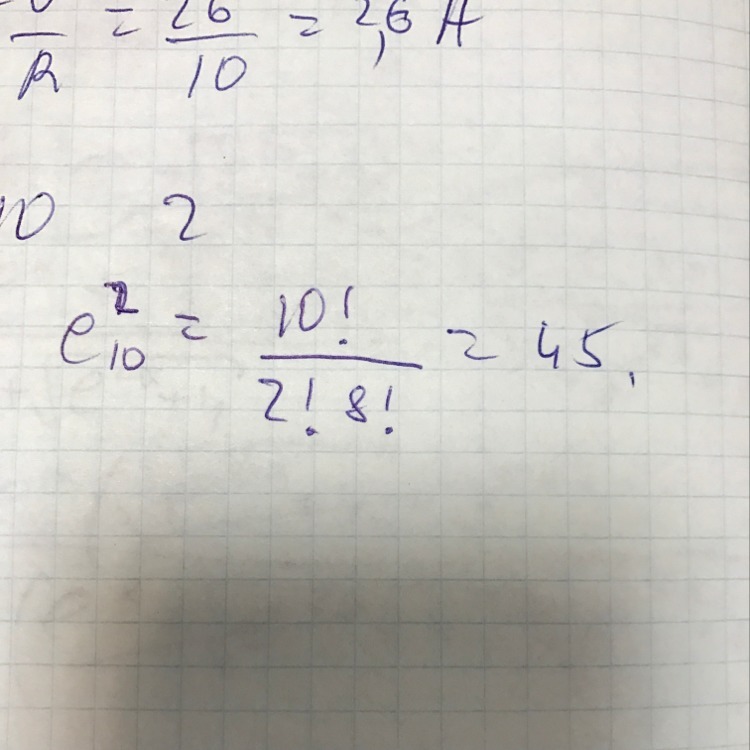 U/R = 26/10 = 2,6 A
10 2
C₁₀² = 10!/(2! 8!) = 45.